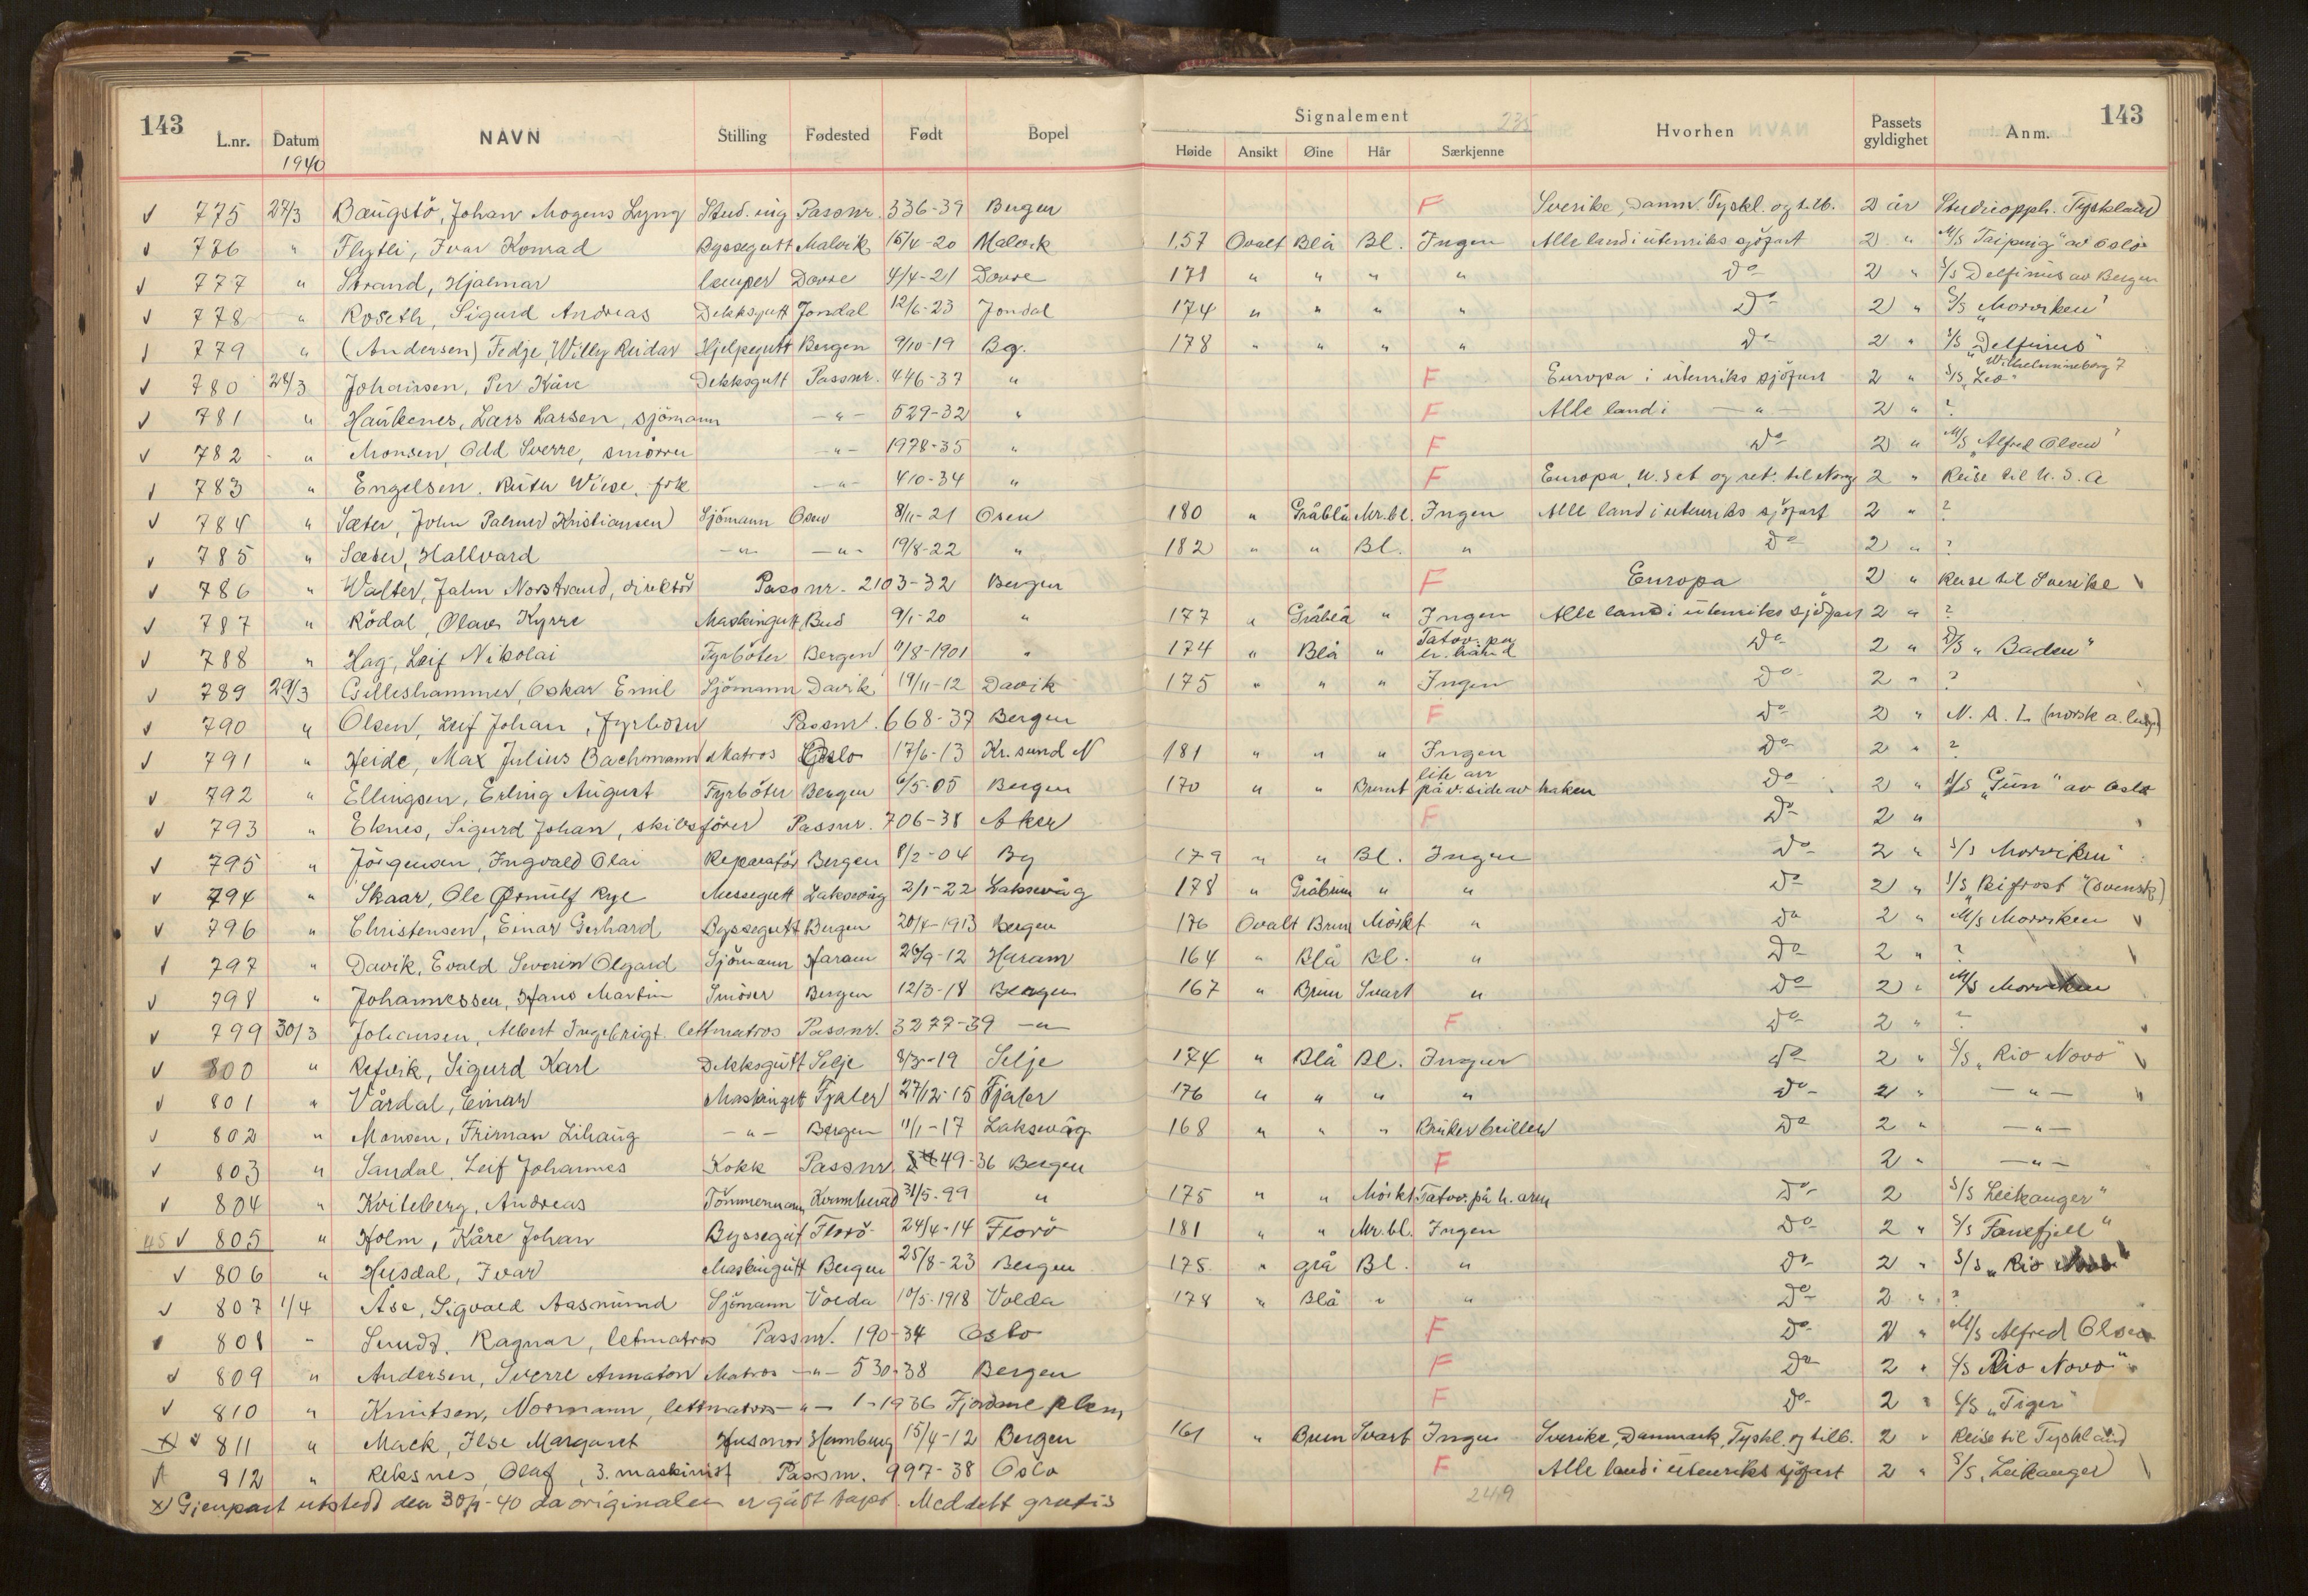 143 Signalement 235 143
L.nr. Datum NAVN Stilling Fødested Født Bopel Høide Ansikt Øine Hår Særkjenne Hvorhen Passets gyldighet Anm.
1940
775 27/3 Baugstö, Johan Mogens Lyng Stud. ing Passnr. 336-39 Bergen F Sverike, Danm. Tyskl. og tilb. 2 år Studieopph. Tyskland
776 " Flytli, Ivar Konrad Byssegutt Malvik 15/4-20 Malvik 157 Ovalt Blå Bl. Ingen Alle land i utenriks sjöfart 2 " M/S Taiping" av Oslo
777 " Strand, Hjalmar lemper Dovre 4/4-21 Dovre 171 " " " " Do 2 " S/S Delfinus av Bergen
778 " Roseth, Sigurd Andreas Dekksgutt Jondal 12/6-23 Jondal 174 " " " " Do 2 " S/S "Morviken"
779 " (Andersen) Fedje, Willy Reidar Hjelpegutt Bergen 9/10-19 Bg. 178 " " " " Do 2 " S/S "Delfinus"
780 28/3 Johansen, Per Kåre Dekksgutt Passnr. 446-37 " F Europa i utenriks sjöfart 2 " S/S "Leo"
781 " Haukenes, Lars Larsen, sjömann -"- 529-32 " F Alle land i -"- 2 " ?
782 " Monsen, Odd Sverre, smörer -"- 1978-35 " F Do 2 " M/S "Alfred Olsen"
783 " Engelsen, Ruth Wiese, frk -"- 410-34 " F Europa, U.S.A og ret. til Norge 2 " Reise til U.S.A
784 " Sæter, John Palmer (Kristiansen) Sjömann Osen 8/11-21 Osen 180 " Gråblå Mr.bl. Ingen Alle land i utenriks sjöfart 2 " ?
785 " Sæter, Hallvard -"- -"- 19/8-22 " 182 " " Bl. " Do 2 " ?
786 " Walter, Jahn Norstrand, direktör Passnr. 2103-32 Bergen F Europa 2 " Reise til Sverike
787 " Rödal, Olav Kyrre Maskingutt Bud 9/1-20 " 177 " Gråblå " Ingen Alle land i utenriks sjöfart 2 " ?
788 " Hag, Leif Nikolai Fyrböter Bergen 11/8-1901 " 174 " Blå " Tatov. på v. hånd Do 2 " D/S "Baden"
789 29/3 Gilleshammer, Oskar Emil Sjömann Davik 19/11-12 Davik 175 " " " Ingen Do 2 " ?
790 " Olsen, Leif Johan, fyrböter Passnr. 668-37 Bergen F Do 2 " N. A. L. (norsk a. linje)
791 " Heide, Max Julius Bachmann Matros Oslo 17/6-13 Kr.sund N 181 " " " Ingen Do 2 " ?
792 " Ellingsen, Erling August Fyrböter Bergen 6/5-05 Bergen 170 " " Brunt lite arr på v. side av haken Do 2 " S/S "Gun" av Oslo
793 " Eknes, Sigurd Johan, skibsförer Passnr. 706-38 Aker F Do 2 "
795 " Jörgensen, Ingvald Olai Reparatör Bergen 8/2-04 Bg 179 " " Bl. Ingen Do 2 " S/S Morviken"
794 " Skaar, Ole Ørnulf Rye Messegutt Laksevåg 2/1-22 Laksevåg 178 " Gråbrun " " Do 2 " S/S "Bifrost" (Svensk)
796 " Christensen, Einar Gerhard Byssegutt Bergen 20/4-1913 Bergen 176 Ovalt Brun Mörkt " Do 2 " M/S Morviken
797 " Davik, Evald Severin Olgard Sjömann Haram 26/9-12 Haram 164 " Blå Bl. " Do 2 " ?
798 " Johannessen, Hans Martin Smörer Bergen 12/3-18 Bergen 167 " Brun Svart " Do 2 " M/S Morviken
799 30/3 Johansen, Albert Ingebrigt. lettmatros Passnr. 3277-39 -"- F Do 2 " ?
800 " Refvik, Sigurd Karl Dekksgutt Selje 8/3-19 Selje 174 " Blå Bl. Ingen Do 2 " S/S "Rio Novo"
801 " Vårdal, Einar Maskingutt Fjaler 27/12-15 Fjaler 176 " " " " Do 2 " -"-
802 " Monsen, Friman Lihaug -"- Bergen 11/1-17 Laksevåg 168 " " " Bruker briller Do 2 " -"-
803 " Sandal, Leif Johannes Kokk Passnr. 49-36 Bergen F 2 " -"-
804 " Kviteberg, Andreas Tömmermann Kvinnherad 31/5-99 " 175 " " Mörkt Tatov. på h. arm Do 2 S/S Leikanger"
45 805 " Holm, Kåre Johan Byssegut Florö 24/4-14 Florö 181 " " Mr.bl. Ingen Do 2 " S/S Fanefjell"
806 " Husdal, Ivar Maskingutt Bergen 25/8-23 Bergen 178 " grå Bl. " Do 2 " S/S "Rio Novo"
807 1/4 Åse, Sigvald Aasmund Sjömann Volda 10/5-1918 Volda 178 " Blå " " Do 2 " ?
808 " Sundt, Ragnar, letmatros Passnr. 190-34 Oslo F Do 2 " M/S Alfred Olsen
809 " Andersen, Sverre Annaton Matros -"- 530-38 Bergen F Do 2 " S/S Rio Novo"
810 " Knutsen, Normann, lettmatros -"- 1-1936 Fjordane F Do 2 " S/S "Tiger"
x) 811 " Mack, Ilse Margaret Husmor Hamburg 15/4-12 Bergen 161 " Brun Svart Ingen Sverike, Danmark, Tyskl. og tilb. 2 " Reise til Tyskland
812 " Reksnes, Olaf, 3. maskinist Passnr. 997-38 Oslo F Alle land i utenriks sjöfart 2 " S/S "Leikanger"
x) Gjenpart utstedt den 30/4-40 da originalen er gått tapt. Meddelt gratis 249